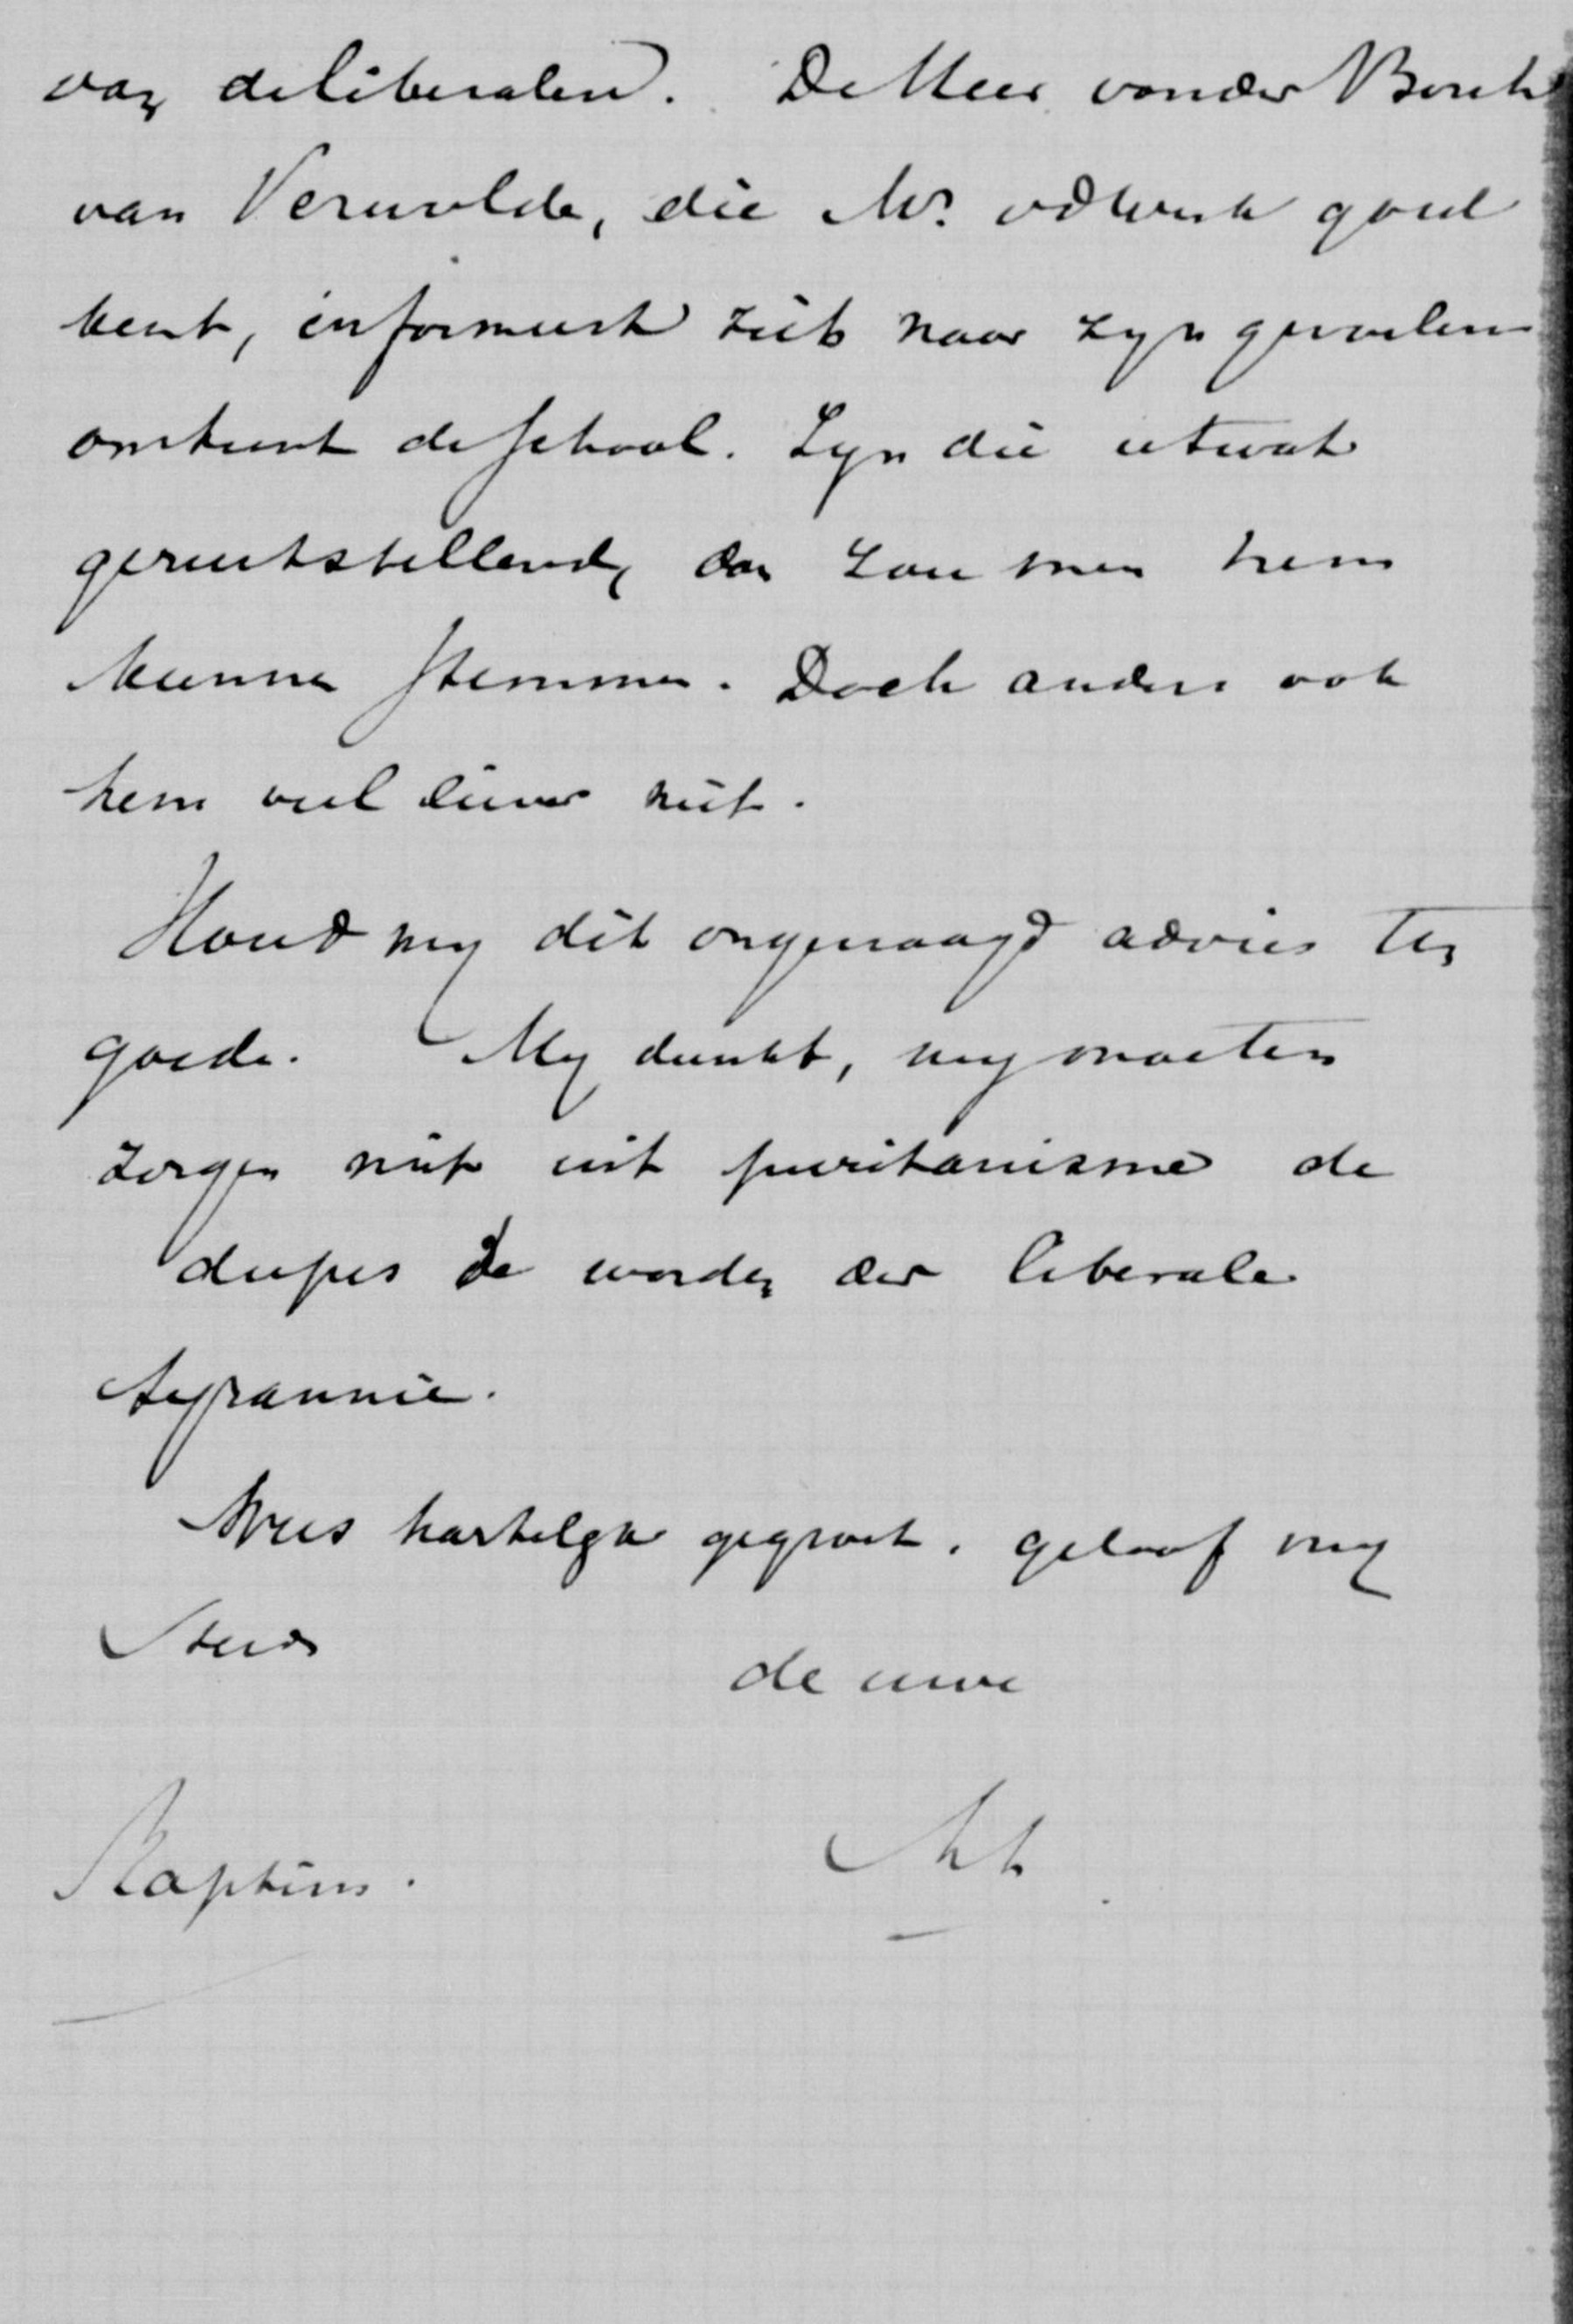 van de liberalen. De Heer van der Borch
van Verwolde, die Mr. vdKerk goed
kent, informeert zich naar zyn gevoelen
omtrent de school. Zyn die ietwat
geruststellend, dan zou men hem
kunnen stemmen. Doch anders ook
hem veel liever niet.
Houd my dit ongevraagd advies ten
goede. My dunkt, wy moeten
zorgen niet uit puritanisme de
dupes te worden der liberale
tyrannie.
Wees hartelyk gegroet. geloof my
Steeds
de uwe
Kapteins.